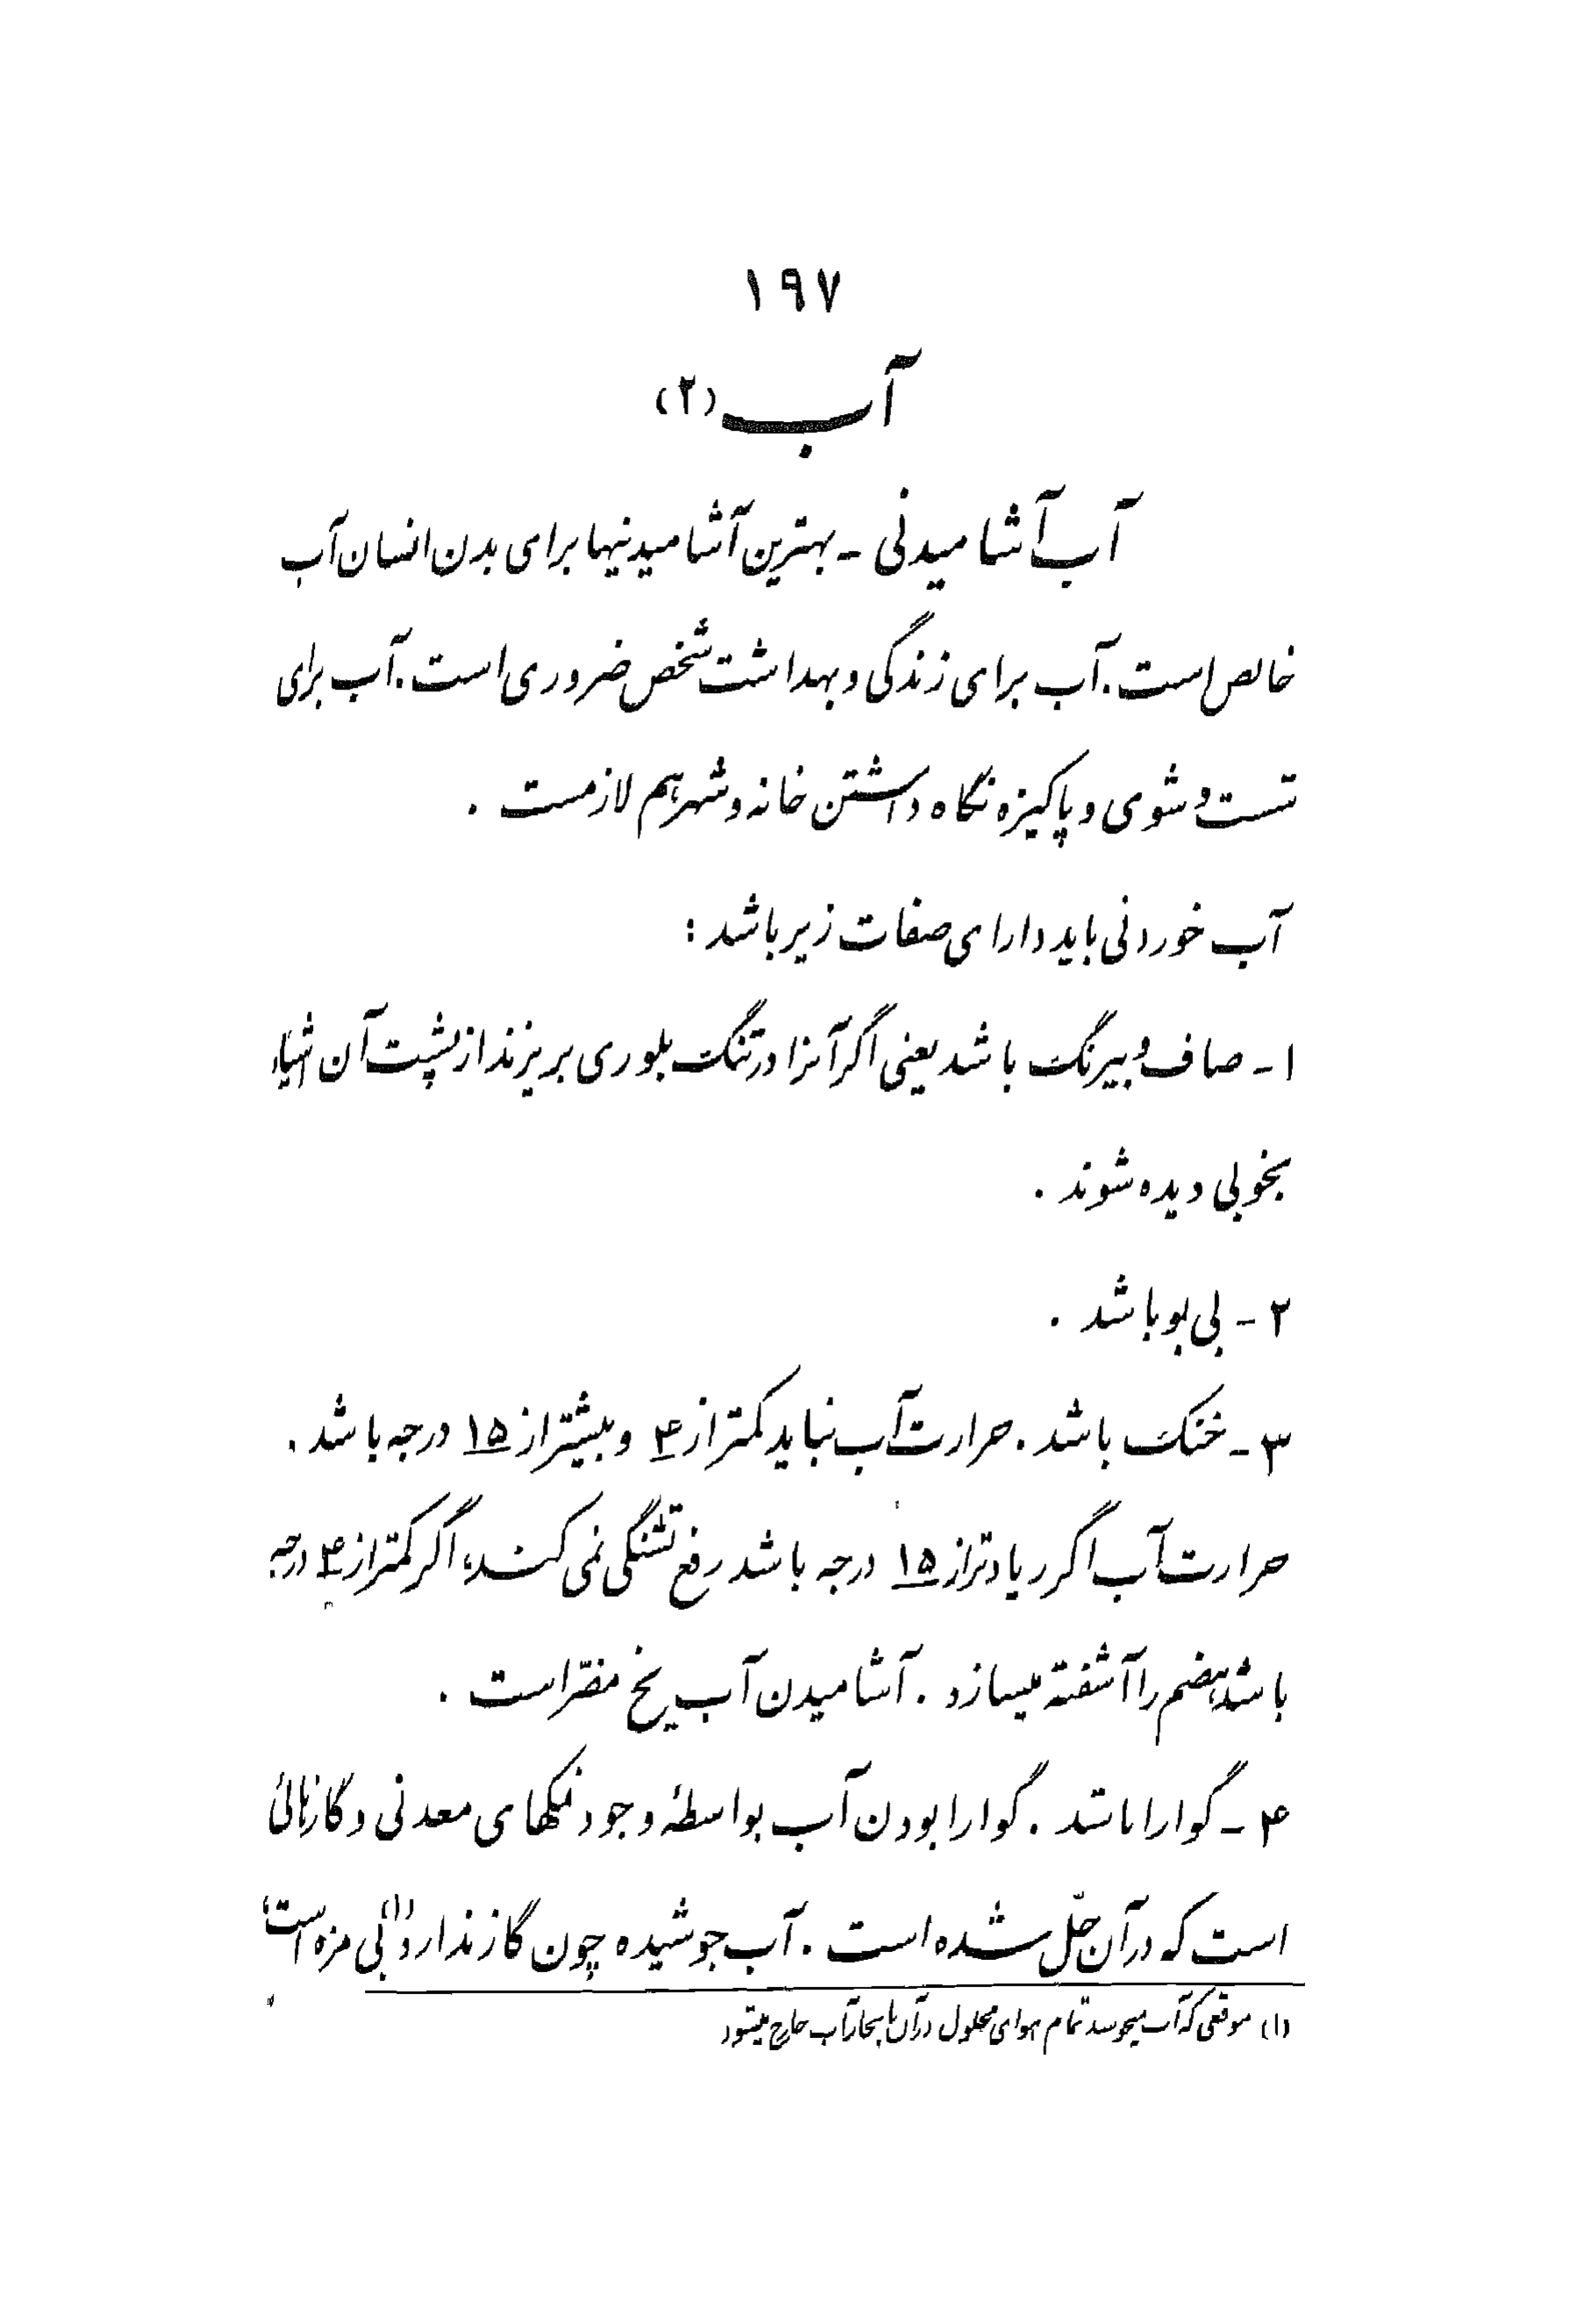 ۱۹۷
آب (۲)
آب آشامیدنی - بهترین آشامیدنیها برای بدن انسان آب
خالص است. آب برای زندگی و بهداشت شخص ضروری است. آب برای
شست و شوی و پاکیزه نگاه داشتن خانه و شهر هم لازمست .
آب خوردنی باید دارای صفات زیر باشد :
۱- صاف و بیرنگ باشد یعنی اگر آنرا در تنگ بلوری بریزند از پشت آن اشیاء
بخوبی دیده شوند .
۲- بی بو باشد .
۳- خنک باشد . حرارت آب نباید کمتر از ۴ و بیشتر از ۱۵ درجه باشد .
حرارت آب اگر زیادتر از ۱۵ درجه باشد رفع تشنگی نمی کند، اگر کمتر از ۴ درجه
باشد، هضم را آشفته میسازد . آشامیدن آب یخ مضرّ است .
۴- گوارا باشد . گوارا بودن آب بواسطهٔ وجود نمکهای معدنی و گازهائی
است که در آن حلّ شده است . آب جوشیده چون گاز ندارد (۱) بی مزه است؛
(۱) موقعی که آب میجوشد تمام هوای محلول در آن با بخار آب خارج میشود